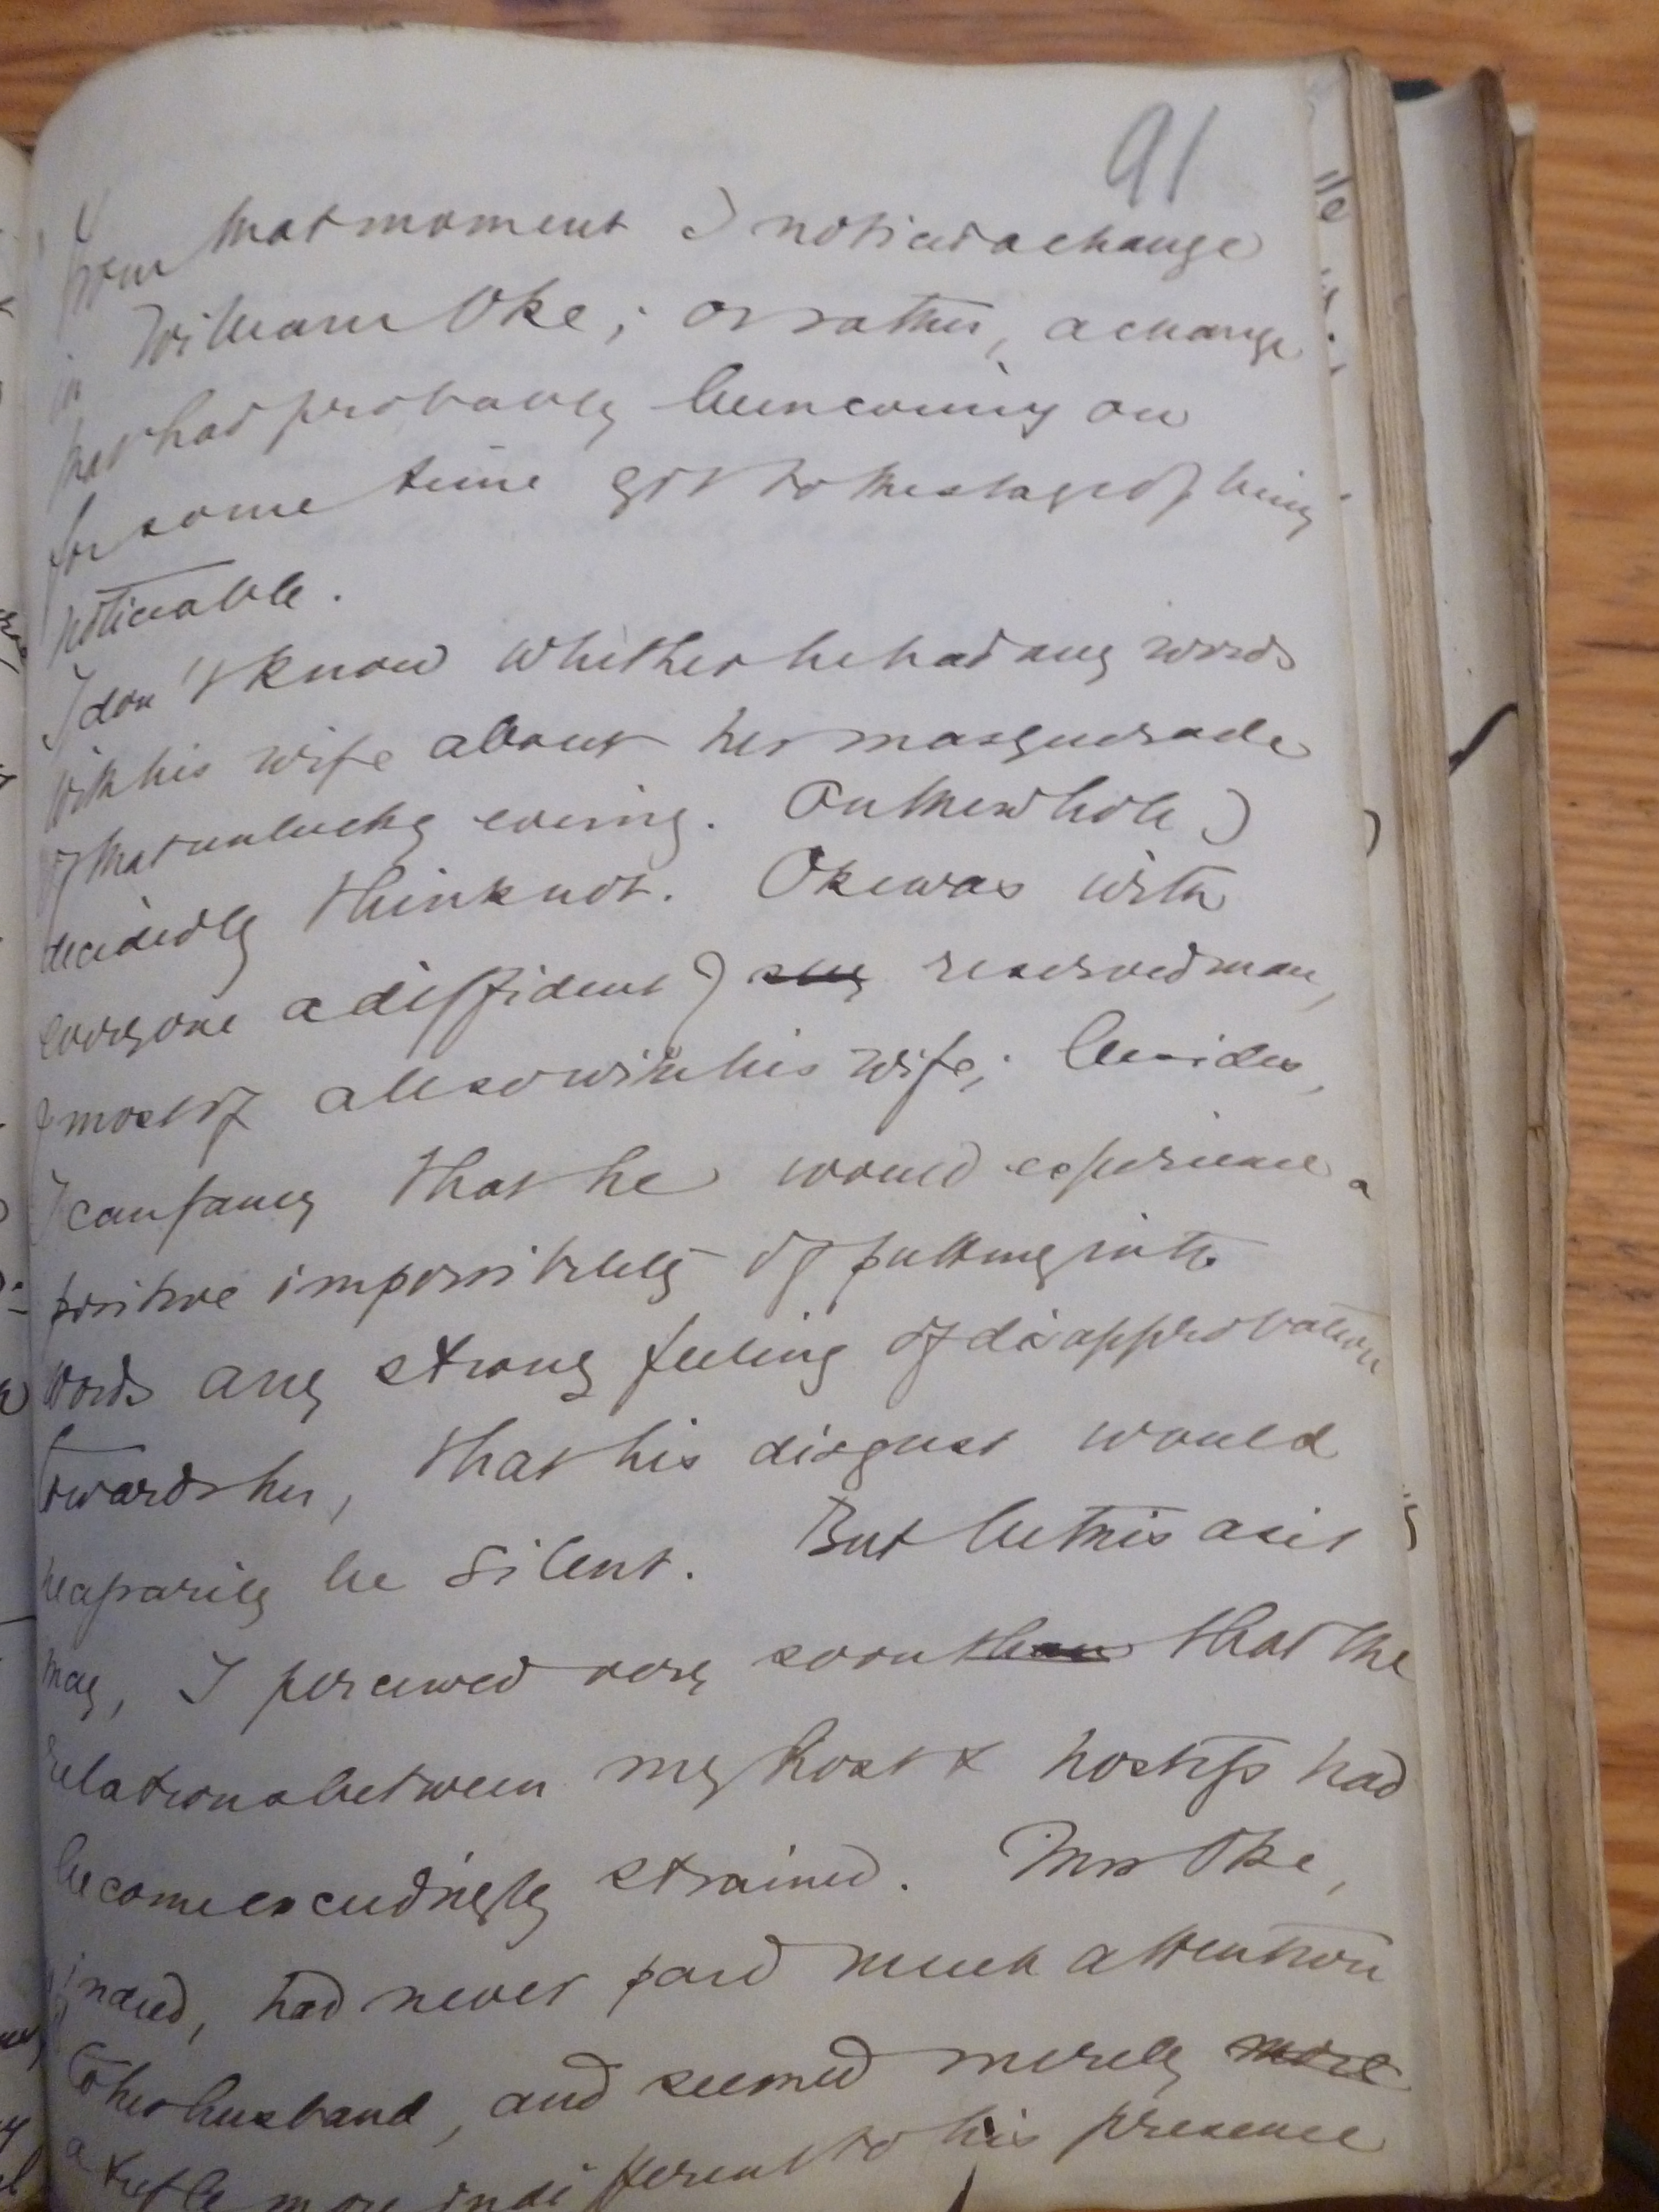 91
From that moment I noticed a change
in William Oke; or rather, a change
that had probably been coming on
for some time got to the stage of being
noticeable.
I don't know whether he had any words
with his wife about her masquerade
of that unlucky evening. On the whole I
decidedly think not. Oke was with
everyone a diffident & reserved man,
& most of all so with his wife; besides,
I can fancy that he would experience a
positive impossibility of putting into
words any strong feeling of disapprobation
towards her, that his disgust would
necessarily be silent. But be this as it
may, I perceived very soon that the
relations between my host & hostess had
become exceedingly strained. Mrs Oke,
indeed, had never paid much attention
to her husband, and seemed merely more
a trifle more indifferent to his presence